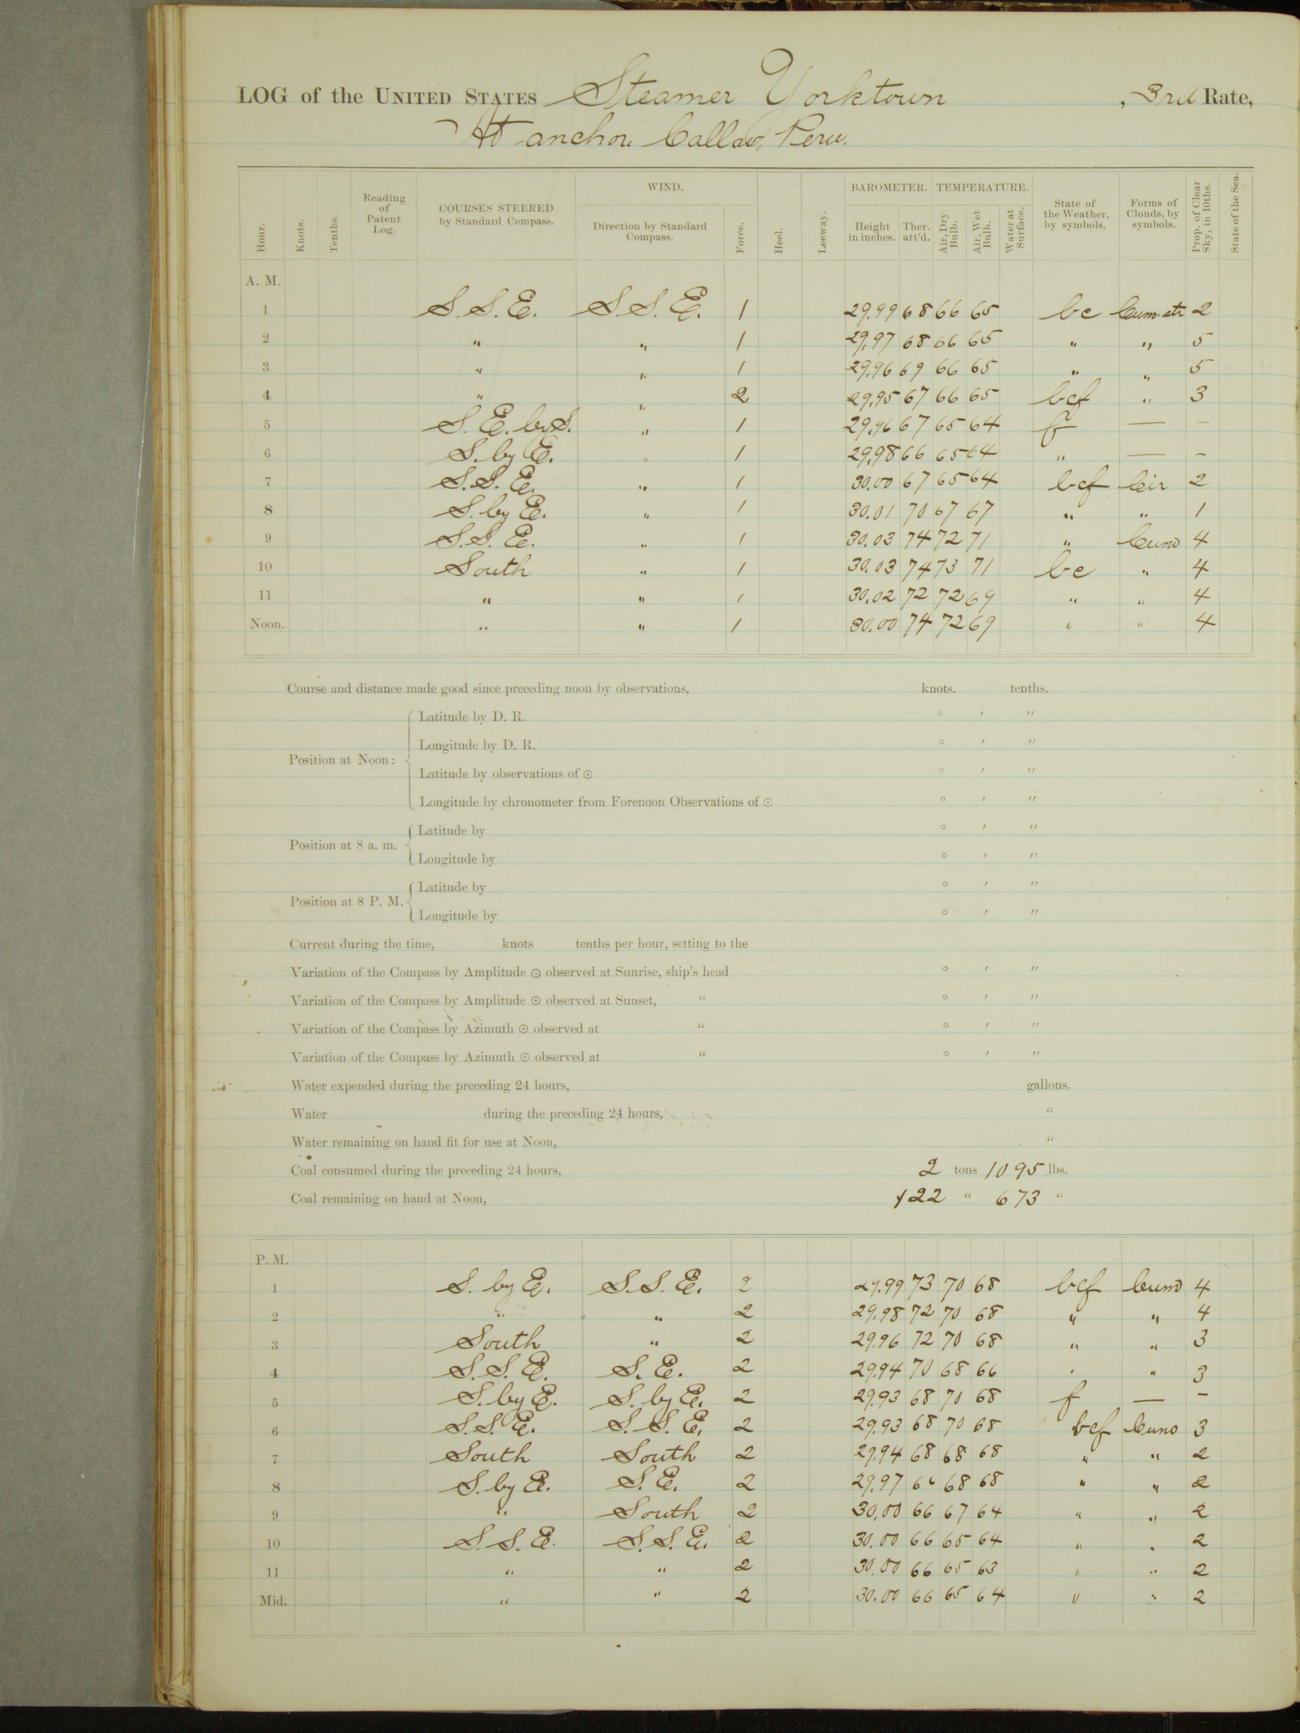 LOG of the UNITED STATES Steamer Yorktown , 3rd Rate,
At anchor Callao, Peru.
Hour. Knots. Tenths. Reading of Patent Log. COURSES STEERED by Standard Compass. WIND. Direction by Standard Compass. Force. Heel. Leeway. BAROMETER. Height in inches. Ther. att'd. TEMPERATURE. Air, Dry Bulb. Air, Wet Bulb. Water at Surface. State of the Weather, by symbols. Forms of Clouds, by symbols. Prop. of Clear Sky, in 10ths. State of the Sea.
A. M.
1 S. S. E. S. S. E. 1 29.99 68 66 65 bc Cum-str 2
2 " " 1 29.97 68 66 65 " " 5
3 " " 1 29.96 69 66 65 " " 5
4 " " 2 29.95 67 66 65 bcf " 3
5 S. E. by S. " 1 29.96 67 65 64 f — –
6 S. by E. " 1 29.98 66 65 64 " — –
7 S. S. E. " 1 30.00 67 65 64 bcf Cir 2
8 S. by E. " 1 30.01 70 67 67 " " 1
9 S. S. E. " 1 30.03 74 72 71 " Cum 4
10 South " 1 30.03 74 73 71 bc " 4
11 " " 1 30.02 72 72 69 " " 4
Noon. " " 1 30.00 74 72 69 " " 4
Course and distance made good since preceding noon by observations, knots. tenths.
Position at Noon: Latitude by D. R. ° ′ ″
Longitude by D. R. ° ′ ″
Latitude by observations of ☉ ° ′ ″
Longitude by chronometer from Forenoon Observations of ☉ ° ′ ″
Position at 8 a. m. Latitude by ° ′ ″
Longitude by ° ′ ″
Position at 8 P. M. Latitude by ° ′ ″
Longitude by ° ′ ″
Current during the time, knots tenths per hour, setting to the
Variation of the Compass by Amplitude ☉ observed at Sunrise, ship's head ° ′ ″
Variation of the Compass by Amplitude ☉ observed at Sunset, " ° ′ ″
Variation of the Compass by Azimuth ☉ observed at " ° ′ ″
Variation of the Compass by Azimuth ☉ observed at " ° ′ ″
Water expended during the preceding 24 hours, gallons.
Water during the preceding 24 hours, "
Water remaining on hand fit for use at Noon, "
Coal consumed during the preceding 24 hours, 2 tons 1095 lbs.
Coal remaining on hand at Noon, 122 " 673 "
P. M.
1 S. by E. S. S. E. 2 29.99 73 70 68 bcf Cum 4
2 " " 2 29.98 72 70 68 " " 4
3 South " 2 29.96 72 70 68 " " 3
4 S. S. E. S. E. 2 29.94 70 68 66 " " 3
5 S. by E. S. by E. 2 29.93 68 70 68 f — –
6 S. S. E. S. S. E. 2 29.93 68 70 68 bcf Cum 3
7 South South 2 29.94 68 68 68 " " 2
8 S. by E. S. E. 2 29.97 68 68 " " 2
9 " South 2 30.00 66 67 64 " " 2
10 S. S. E. S. S. E. 2 30.00 66 65 64 " " 2
11 " " 2 30.00 66 65 63 " " 2
Mid. " " 2 30.00 66 65 64 " " 2